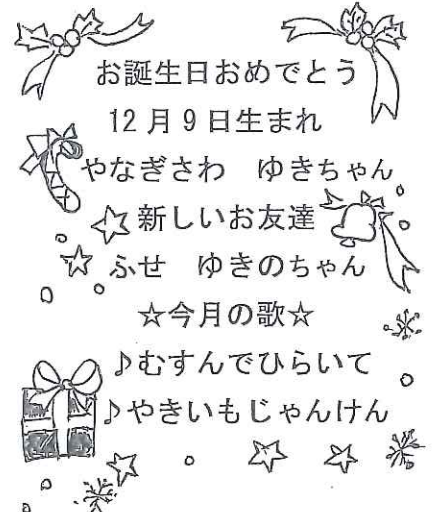 お誕生日おめでとう
12月9日生まれ
やなぎさわ　ゆきちゃん
新しいお友達
ふせ　ゆきのちゃん
☆今月の歌☆
♪むすんでひらいて
♪やきいもじゃんけん